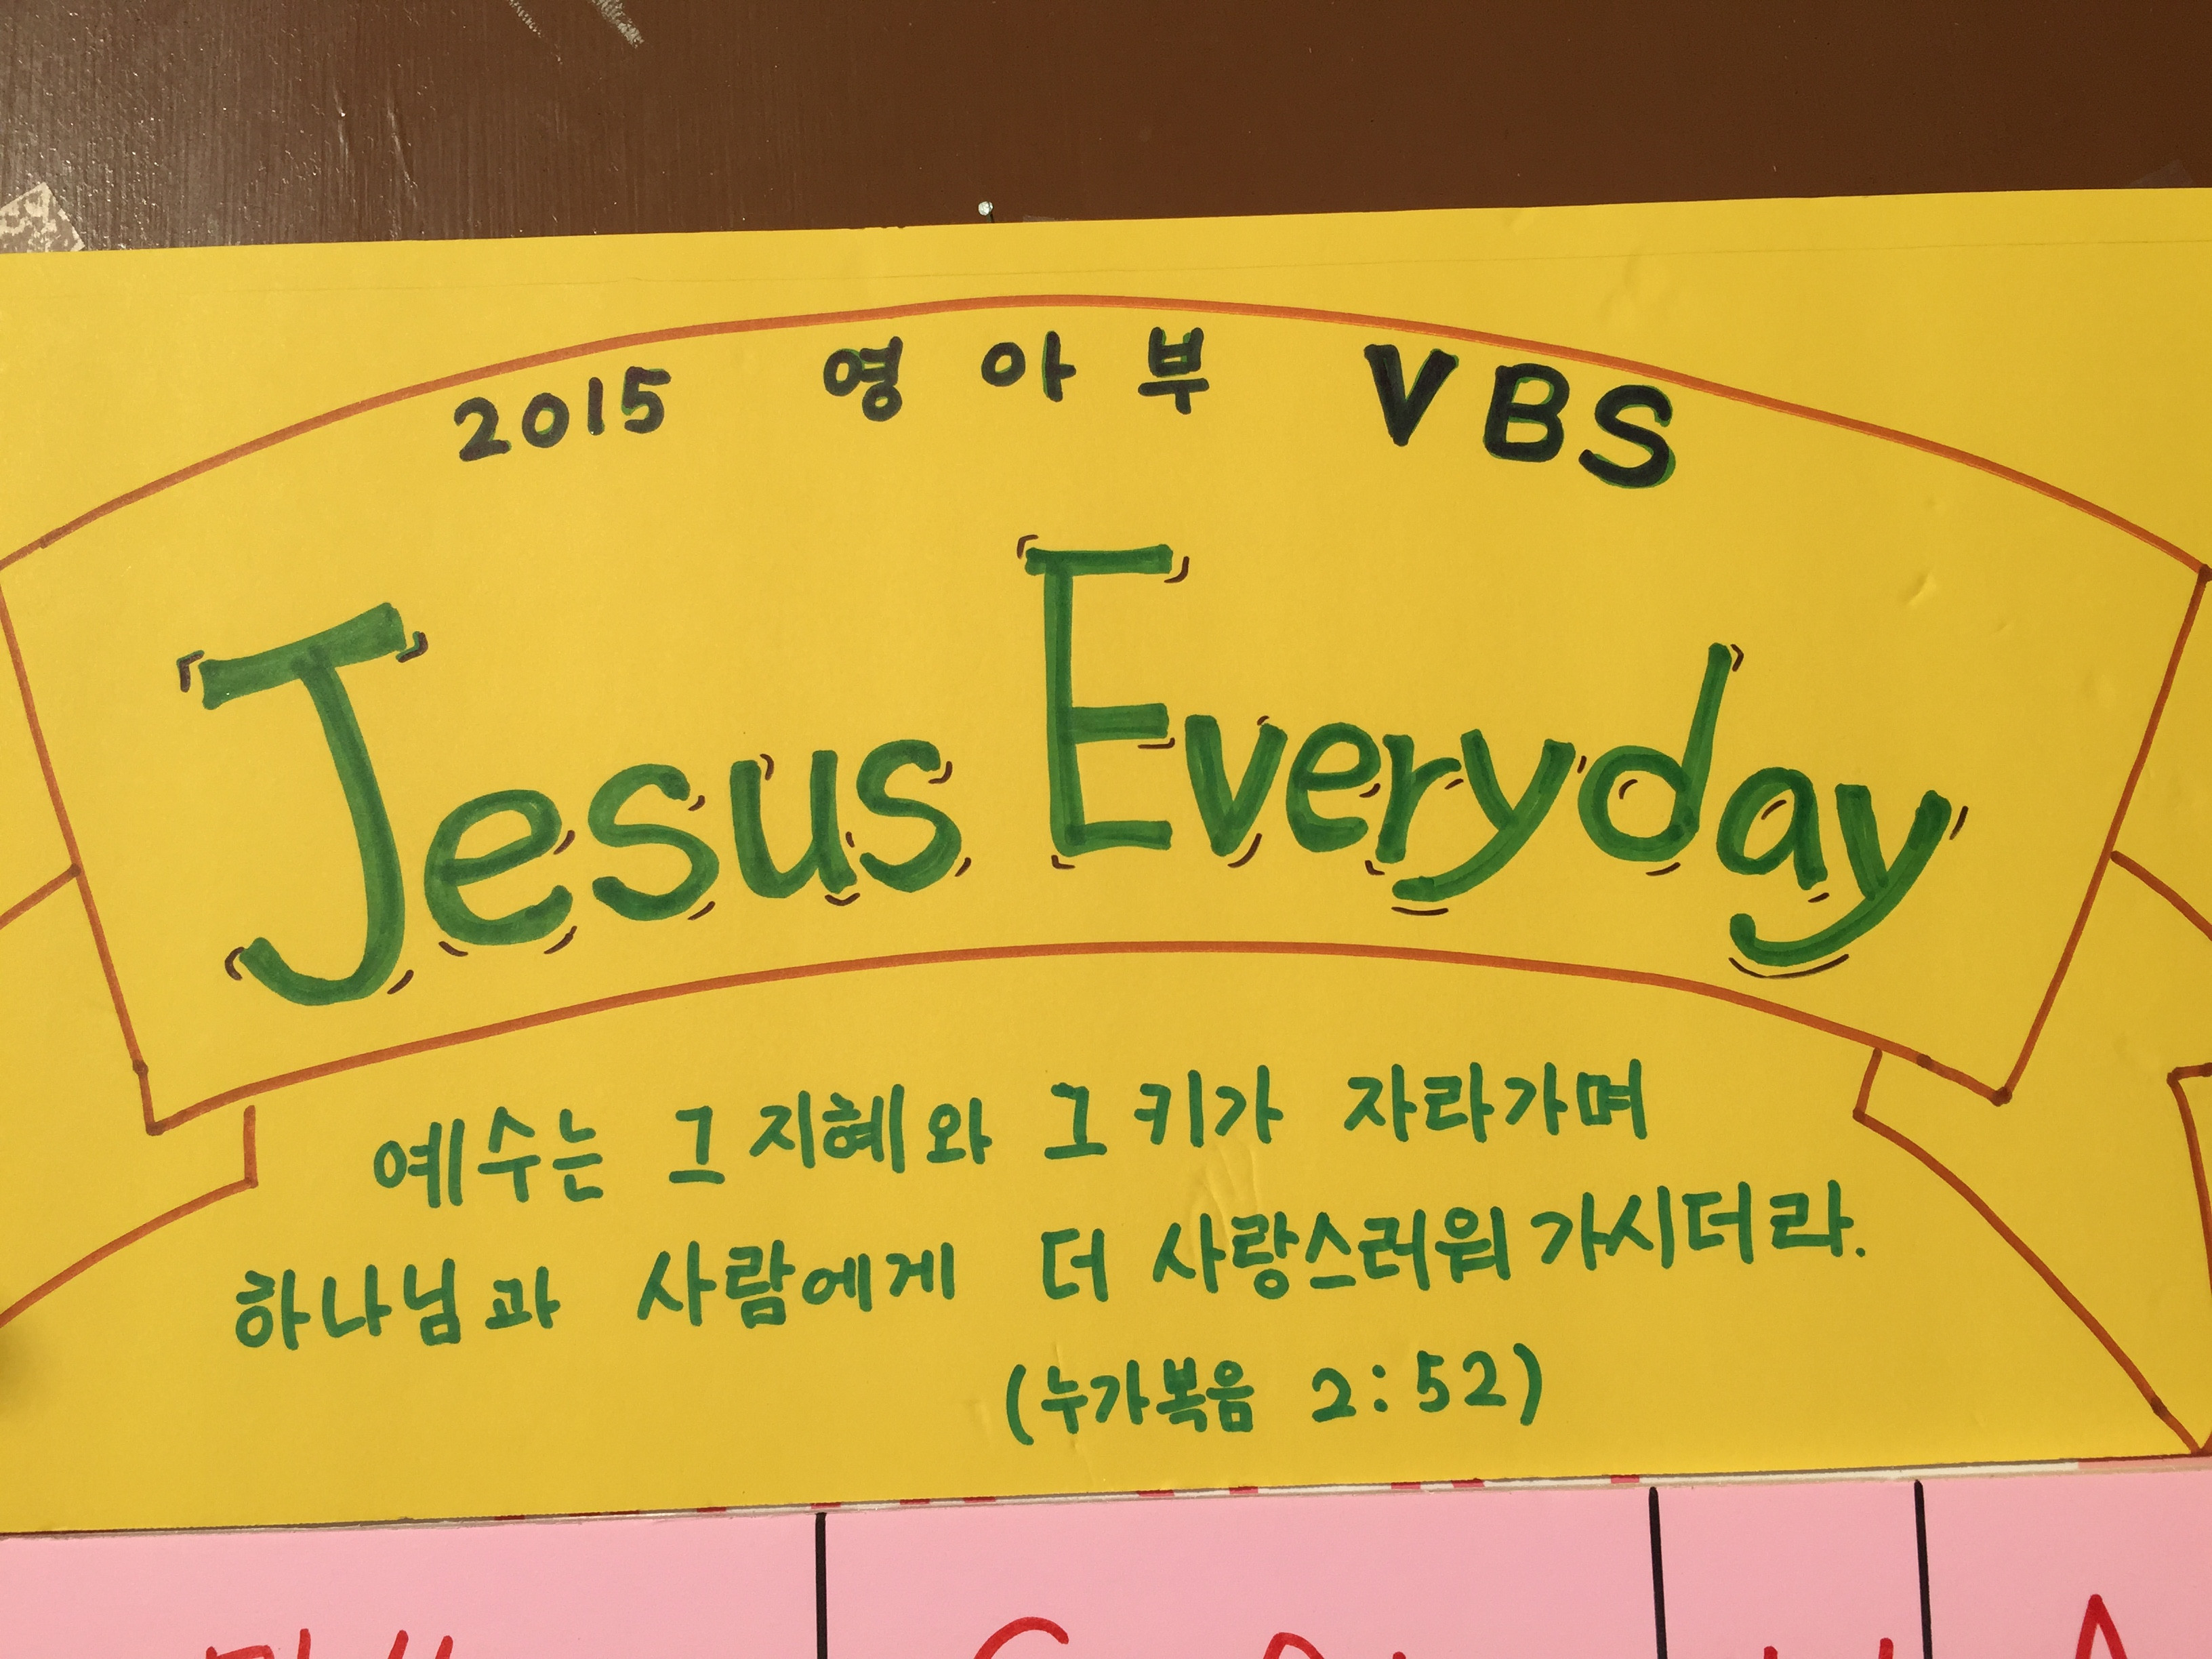 2015 영아부 VBS
Jesus Everyday
예수는 그 지혜와 그 키가 자라가며
하나님과 사람에게 더 사랑스러워 가시더라.
(누가복음 2:52)